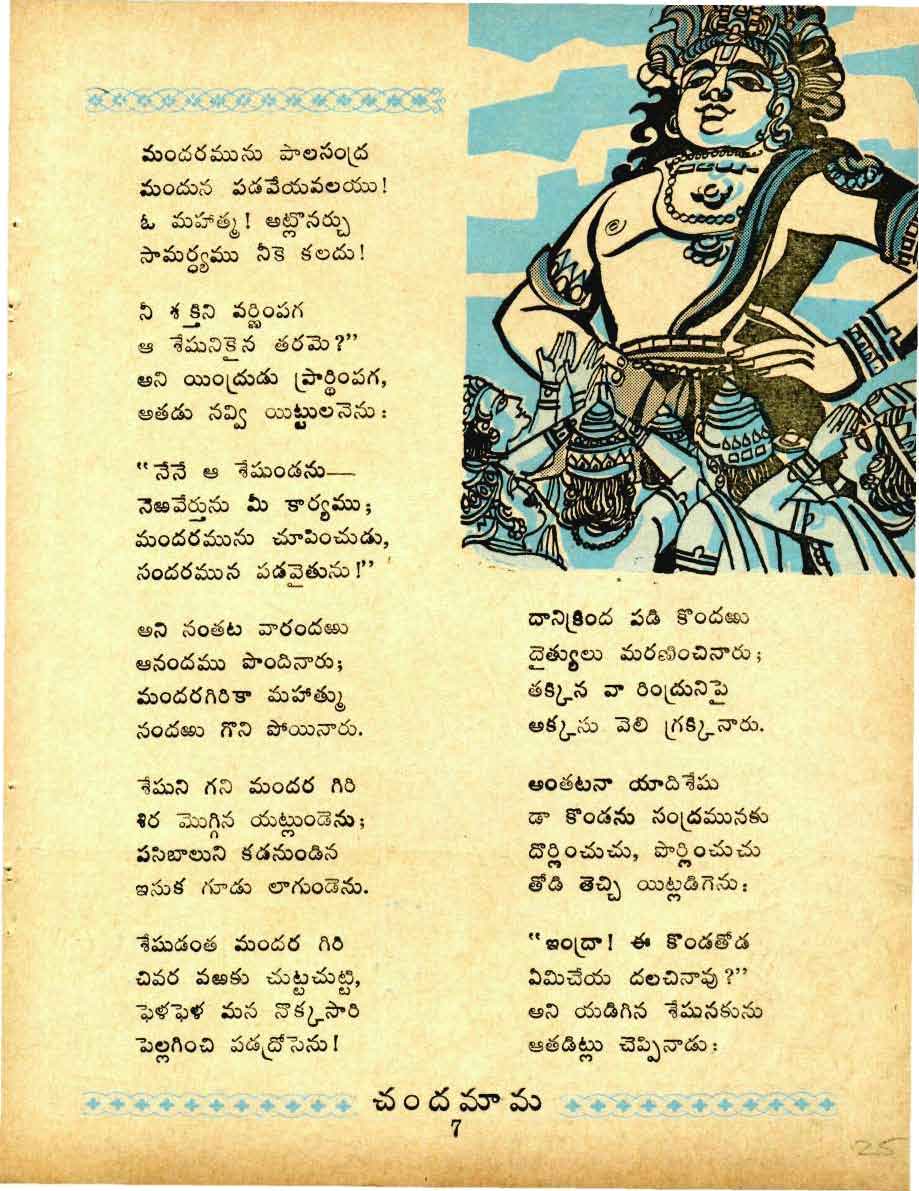 మందరమును పాలసంద్ర
మందున పడవేయవలయు!
ఓ మహాత్మ! అట్లొనర్చు
సామర్థ్యము నీకె కలదు!
నీ శక్తిని వర్ణింపగ
ఆ శేషునికైన తరమె?”
అని యింద్రుడు ప్రార్థింపగ,
అతడు నవ్వి యిట్టులనెను:
“నేనే ఆ శేషుండను—
నెఱవేర్తును మీ కార్యము;
మందరమును చూపించుడు,
సందరమున పడవైతును!”
అని నంతట వారందఱు
ఆనందము పొందినారు;
మందరగిరికా మహాత్ము
నందఱు గొని పోయినారు.
శేషుని గని మందర గిరి
శిర మొగ్గిన యట్లుండెను;
పసిబాలుని కడనుండిన
ఇసుక గూడు లాగుండెను.
శేషుడంత మందర గిరి
చివర వఱకు చుట్టచుట్టి,
ఫెళఫెళ మన నొక్కసారి
పెల్లగించి పడద్రోసెను!
దానిక్రింద పడి కొందఱు
దైత్యులు మరణించినారు;
తక్కిన వా రింద్రునిపై
అక్కసు వెలి గ్రక్కినారు.
అంతటనా యాదిశేషు
డా కొండను సంద్రమునకు
దొర్లించుచు, పొర్లించుచు
తోడి తెచ్చి యిట్లడిగెను:
“ఇంద్రా! ఈ కొండతోడ
ఏమిచేయ దలచినావు?”
అని యడిగిన శేషునకును
ఆతడిట్లు చెప్పినాడు:
చందమామ
7
25